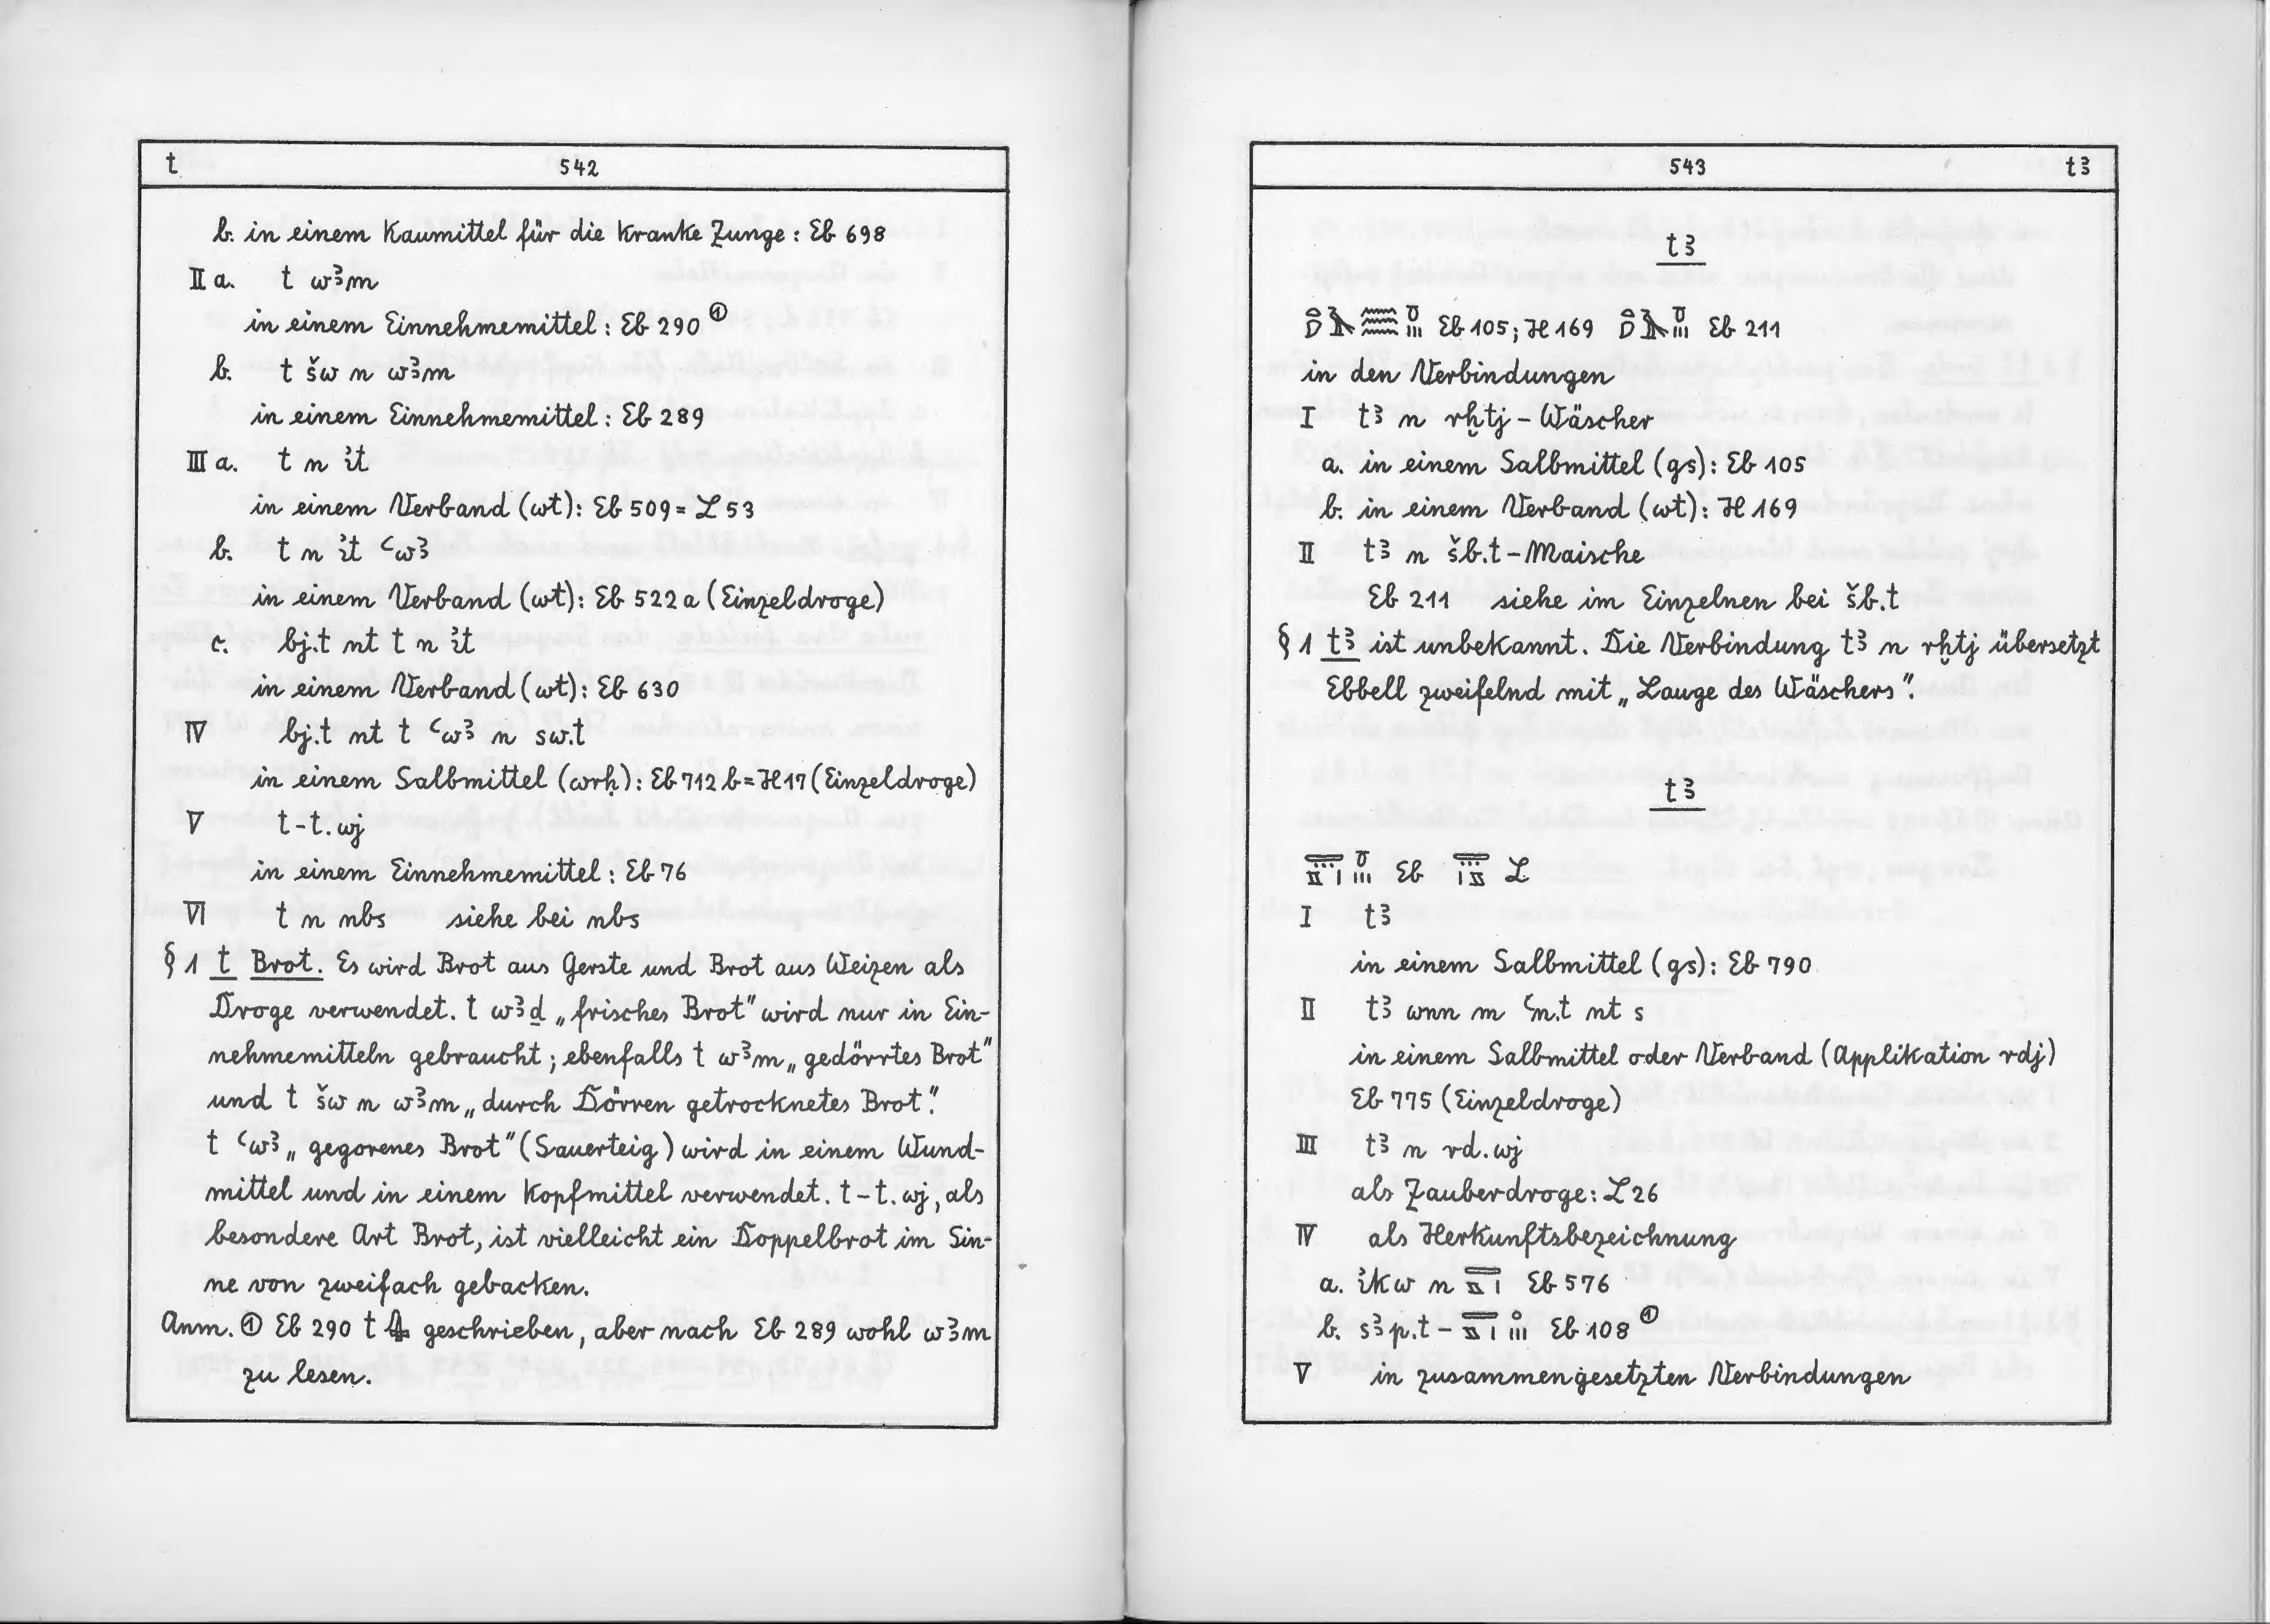 t 542
b. in einem Kaumittel für die kranke Zunge: Eb 698
II a. t wꜣm
in einem Einnehmemittel: Eb 290 ①
b. t šw n wꜣm
in einem Einnehmemittel: Eb 289
III a. t n ı͗t
in einem Verband (wt): Eb 509 = L 53
b. t n ı͗t ꜥwꜣ
in einem Verband (wt): Eb 522 a (Einzeldroge)
c. bj.t nt t n ı͗t
in einem Verband (wt): Eb 630
IV bj.t nt t ꜥwꜣ n sw.t
in einem Salbmittel (wrḥ): Eb 712 b = H 17 (Einzeldroge)
V t-t.wj
in einem Einnehmemittel: Eb 76
VI t n nbs siehe bei nbs
§ 1 t Brot. Es wird Brot aus Gerste und Brot aus Weizen als
Droge verwendet. t wꜣḏ „frisches Brot" wird nur in Ein-
nehmemitteln gebraucht; ebenfalls t wꜣm „gedörrtes Brot"
und t šw n wꜣm „durch Dörren getrocknetes Brot".
t ꜥwꜣ „gegorenes Brot" (Sauerteig) wird in einem Wund-
mittel und in einem Kopfmittel verwendet. t-t.wj, als
besondere Art Brot, ist vielleicht ein Doppelbrot im Sin-
ne von zweifach gebacken.
Anm. ① Eb 290 t geschrieben, aber nach Eb 289 wohl wꜣm
zu lesen.
543 tꜣ
tꜣ
Eb 105; H 169 Eb 211
in den Verbindungen
I tꜣ n rḫtj - Wäscher
a. in einem Salbmittel (gs): Eb 105
b. in einem Verband (wt): H 169
II tꜣ n šb.t - Maische
Eb 211 siehe im Einzelnen bei šb.t
§ 1 tꜣ ist unbekannt. Die Verbindung tꜣ n rḫtj übersetzt
Ebbell zweifelnd mit „Lauge des Wäschers".
tꜣ
Eb L
I tꜣ
in einem Salbmittel (gs): Eb 790
II tꜣ wnn m ꜥn.t nt s
in einem Salbmittel oder Verband (Applikation rdj)
Eb 775 (Einzeldroge)
III tꜣ n rd.wj
als Zauberdroge: L 26
IV als Herkunftsbezeichnung
a. ı͗kw n Eb 576
b. sꜣp.t - Eb 108 ①
V in zusammengesetzten Verbindungen